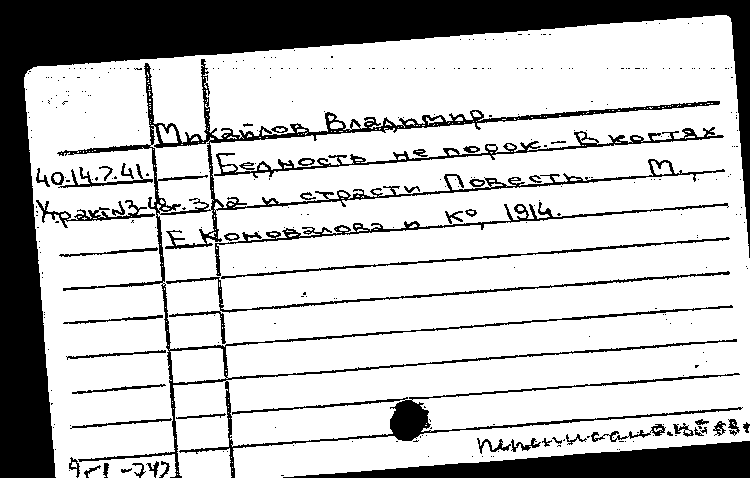 Михайлов, Владимир.
40.14.7.41. Бедность не порок. – В когтях
Утр. акт №3-48г. зла и страсти Повесть. М.,
Е. Коновалова и К°, 1914.
переписано